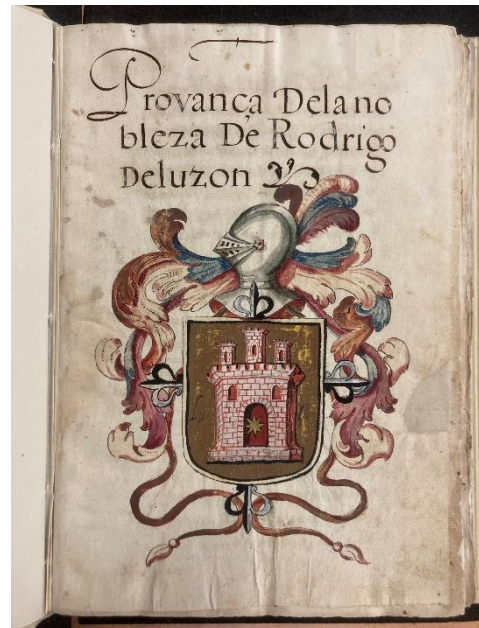 Provança Delano
bleza De Rodrigo
Deluzon